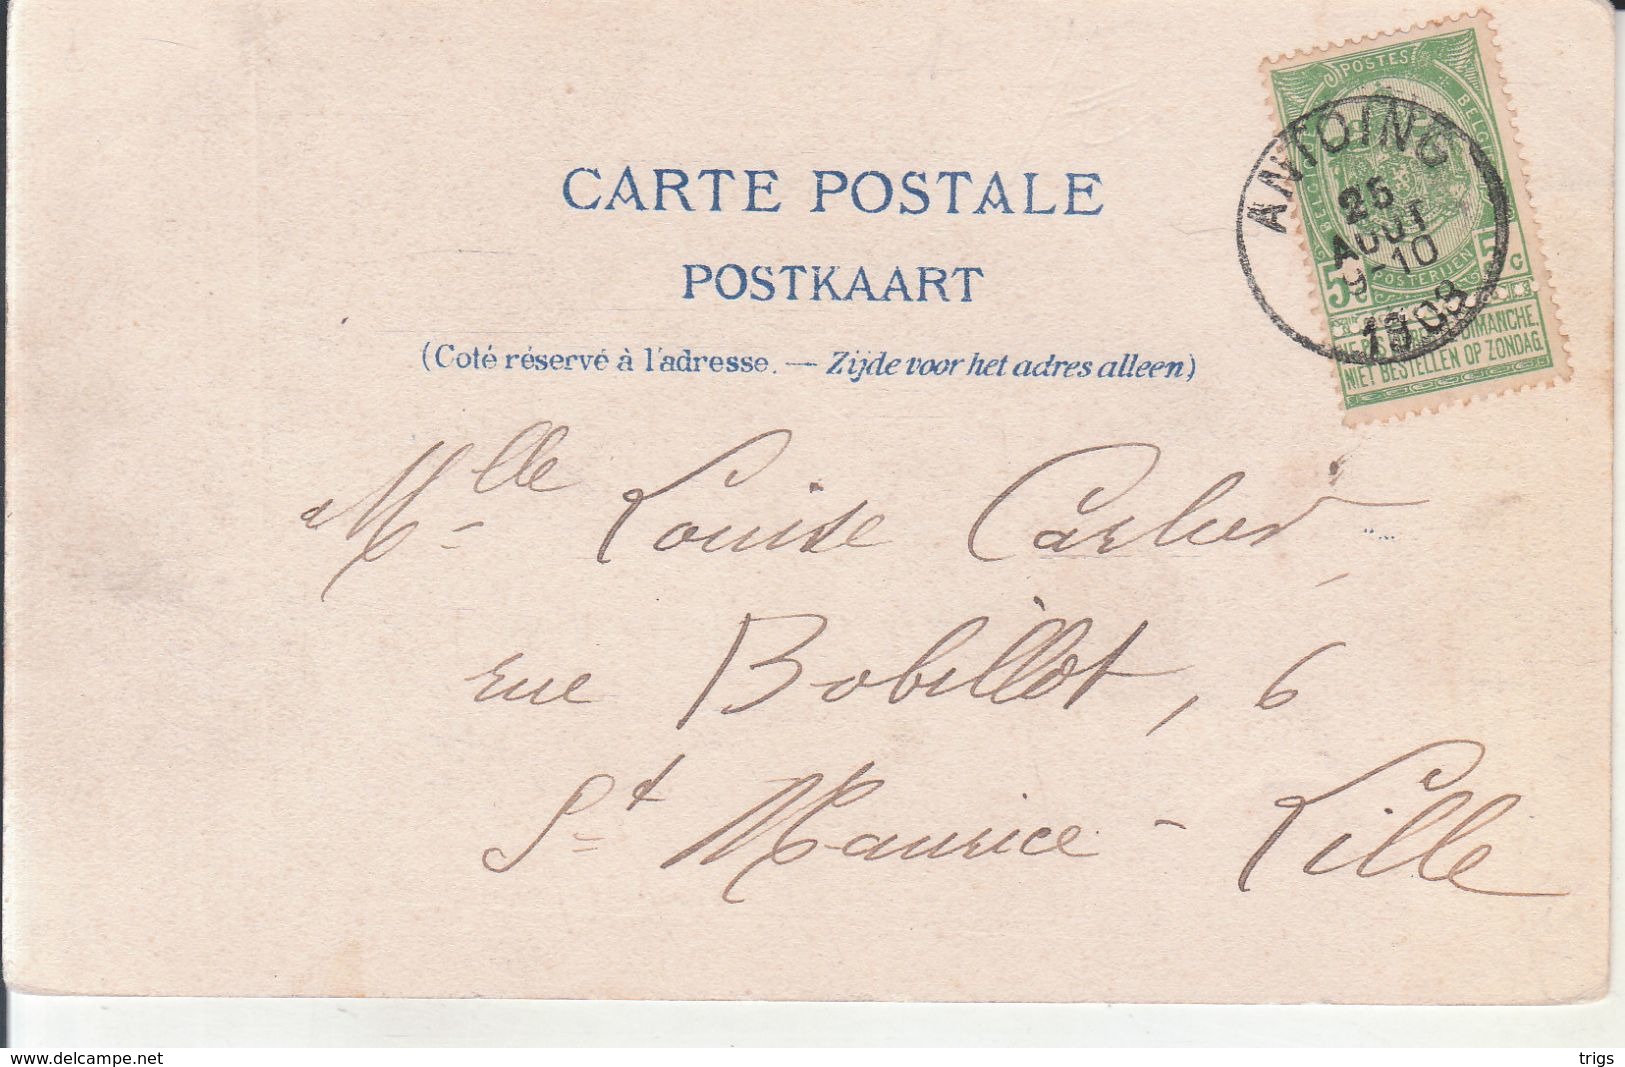 CARTE POSTALE
POSTKAART
(Coté réservé à l'adresse. — Zijde voor het adres alleen)
POSTES
BELGIQUE
BELGIË
POSTERIJEN
5c 5c
NE PAS LIVRER LE DIMANCHE.
NIET BESTELLEN OP ZONDAG.
ANTOING
25
AOUT
9-10
1903
Mlle Louise Carlier
rue Bobillot, 6
St Maurice - Lille
www.delcampe.net
trigs